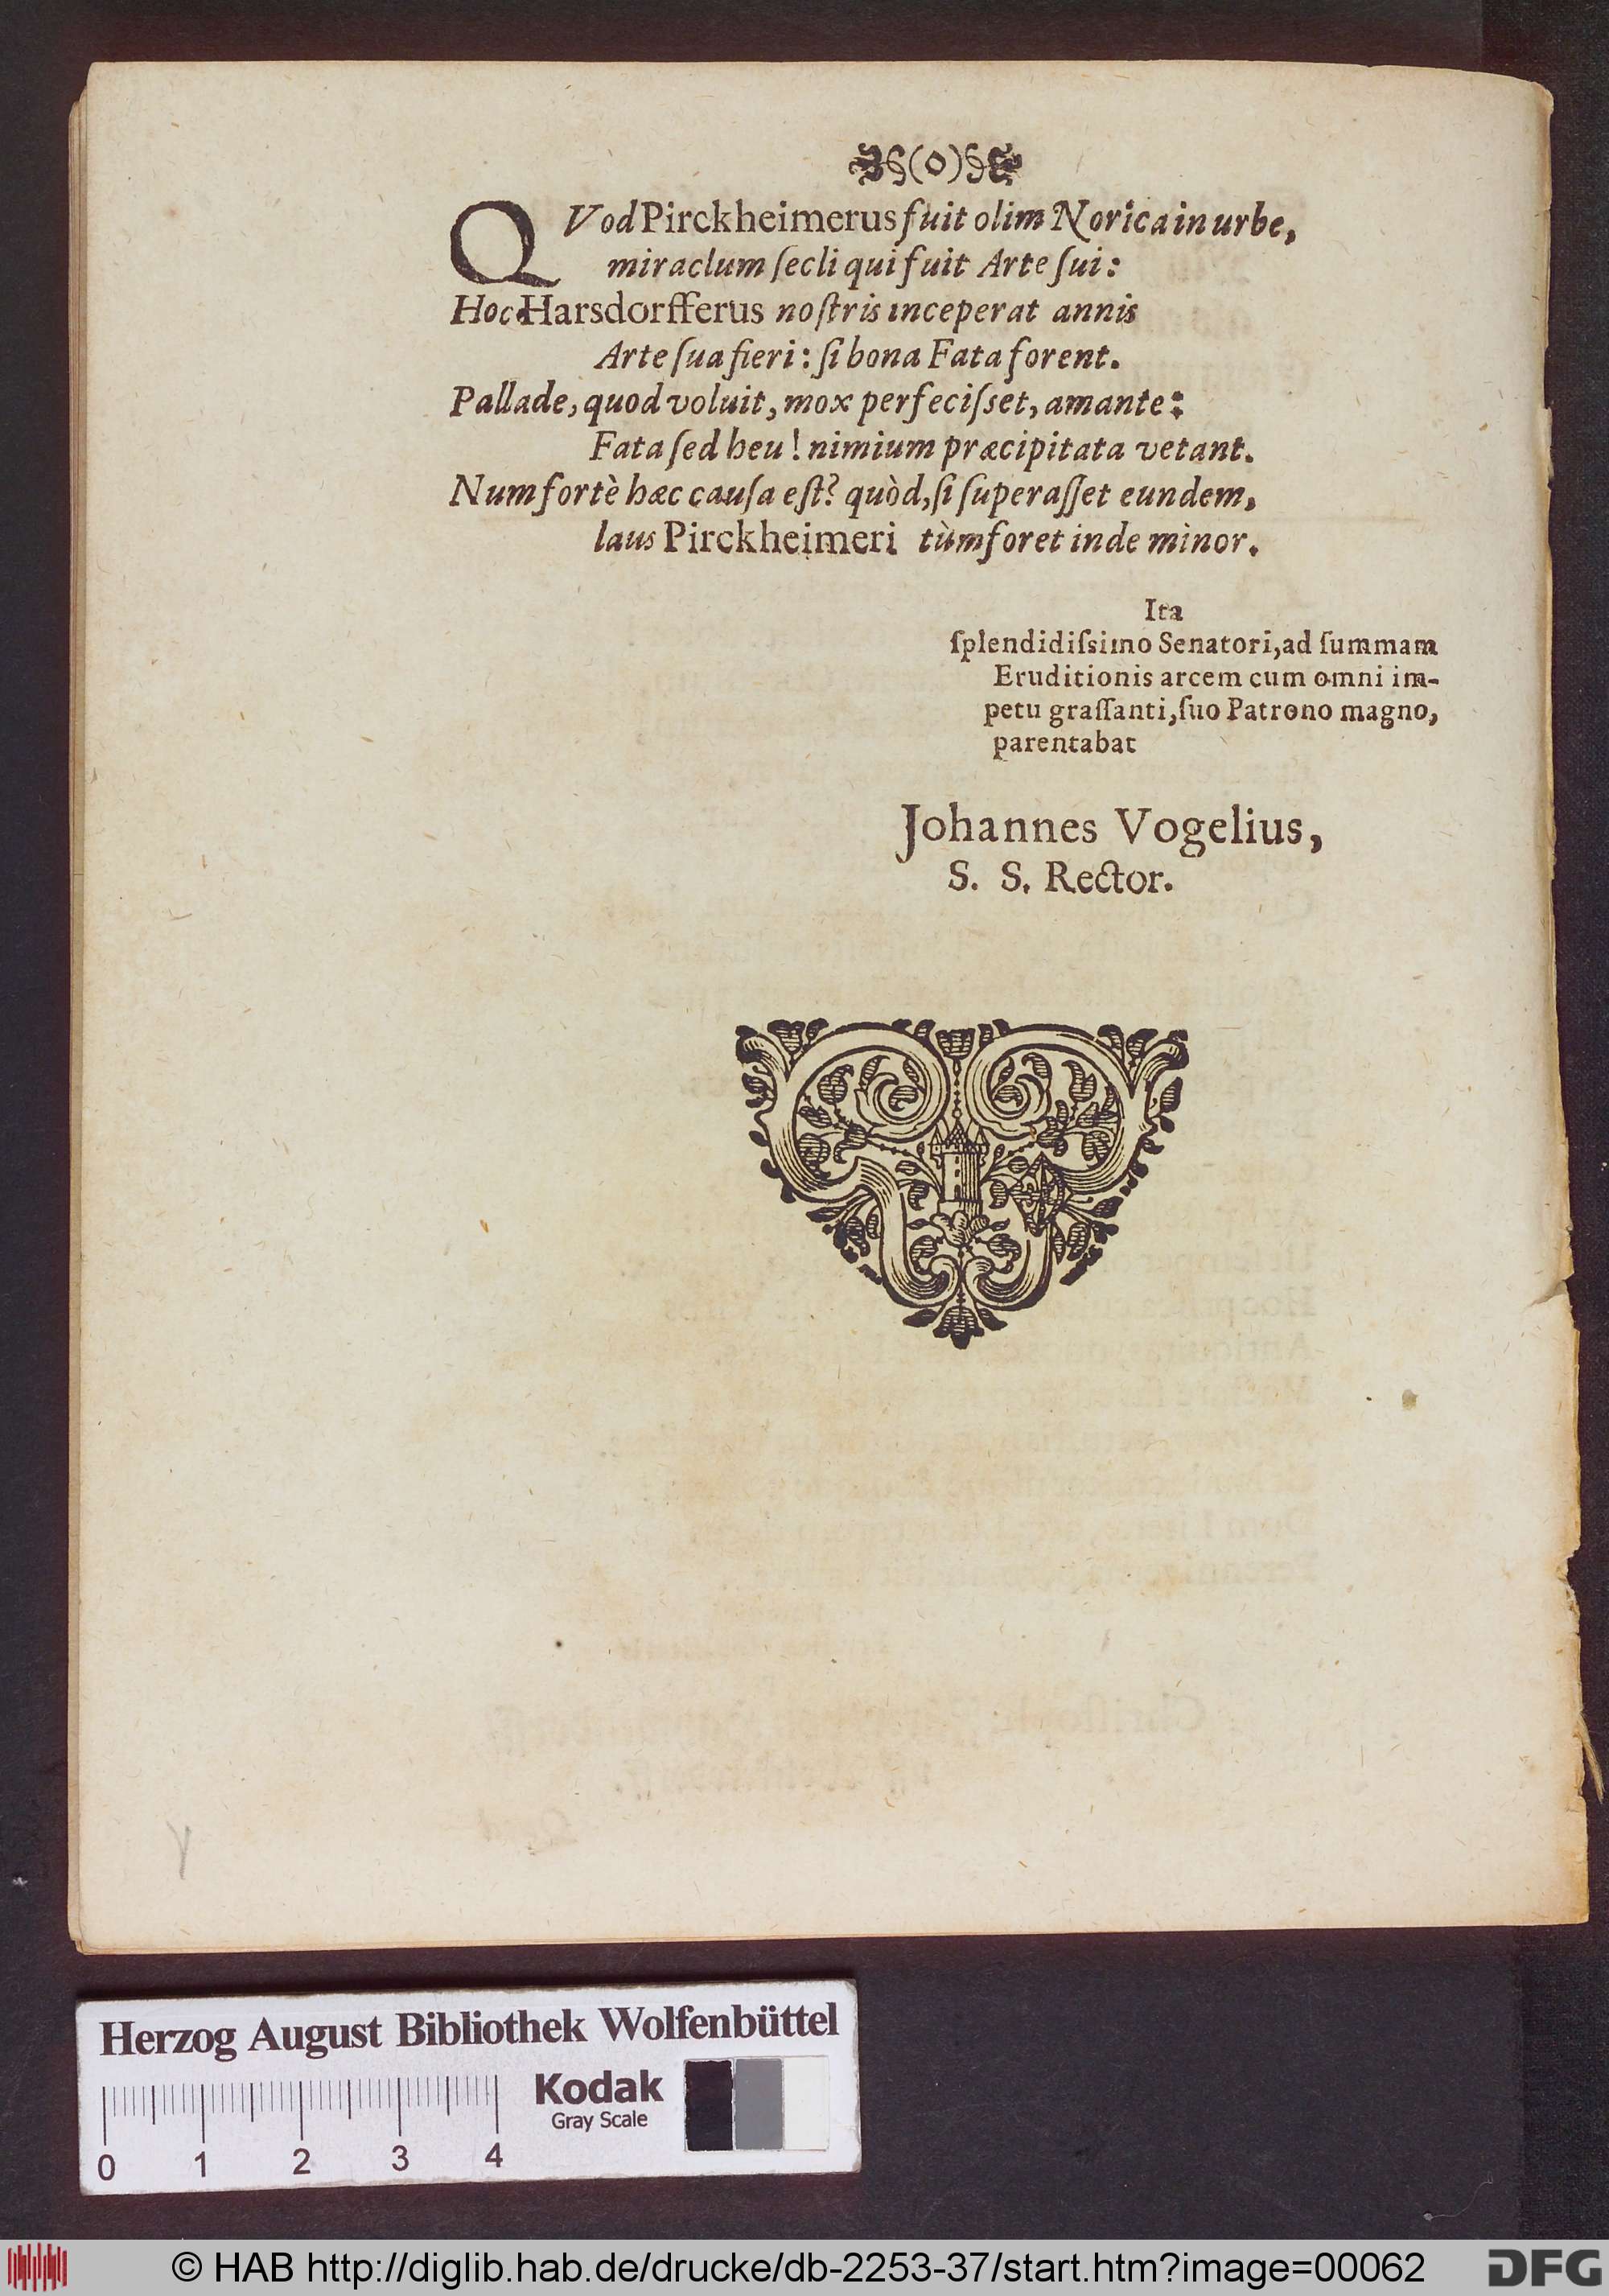 §(0)§
QVod Pirckheimerus fuit olim Norica in urbe,
miraclum ſecli qui fuit Arte ſui:
Hoc Harsdorfferus noſtris inceperat annis
Arte ſua fieri: ſi bona Fata forent.
Pallade, quod voluit, mox perfeciſset, amante:
Fata ſed heu! nimium præcipitata vetant.
Num fortè hæc cauſa eſt? quòd, ſi ſuperaſſet eundem,
laus Pirckheimeri tùm foret inde minor.
Ita
ſplendidiſsimo Senatori, ad ſummam
Eruditionis arcem cum omni im-
petu graſſanti, ſuo Patrono magno,
parentabat
Johannes Vogelius,
S. S. Rector.
Herzog August Bibliothek Wolfenbüttel
Kodak
Gray Scale
0 1 2 3 4
© HAB http://diglib.hab.de/drucke/db-2253-37/start.htm?image=00062
DFG